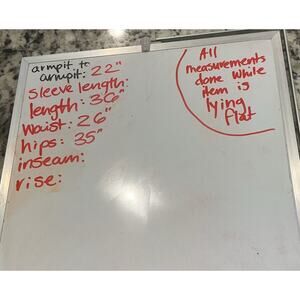 armpit to
armpit: 22"
sleeve length:
length: 36"
waist: 26"
hips: 35"
inseam:
rise:
All
measurements
done while
item is
lying
flat